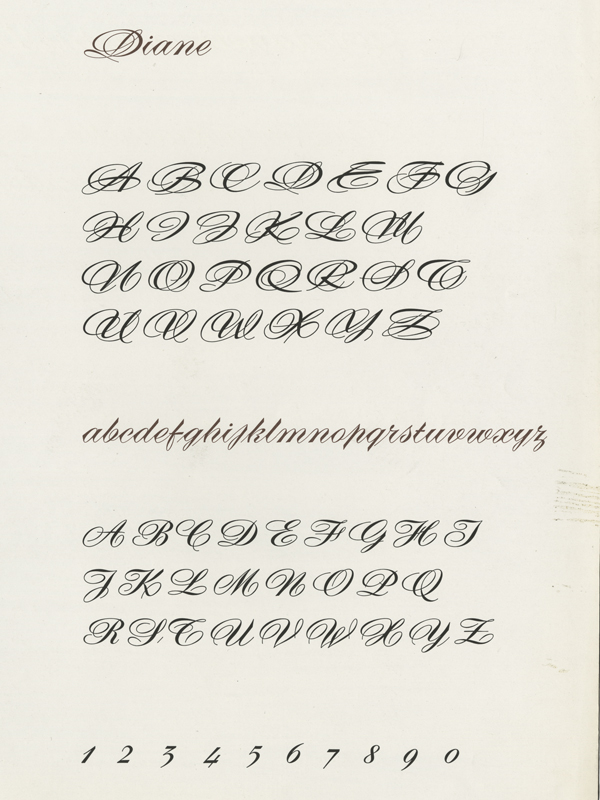 Diane
A B C D E F G
H I J K L M
N O P Q R S T
U V W X Y Z
abcdefghijklmnopqrstuvwxyz
A B C D E F G H I
J K L M N O P Q
R S T U V W X Y Z
1 2 3 4 5 6 7 8 9 0